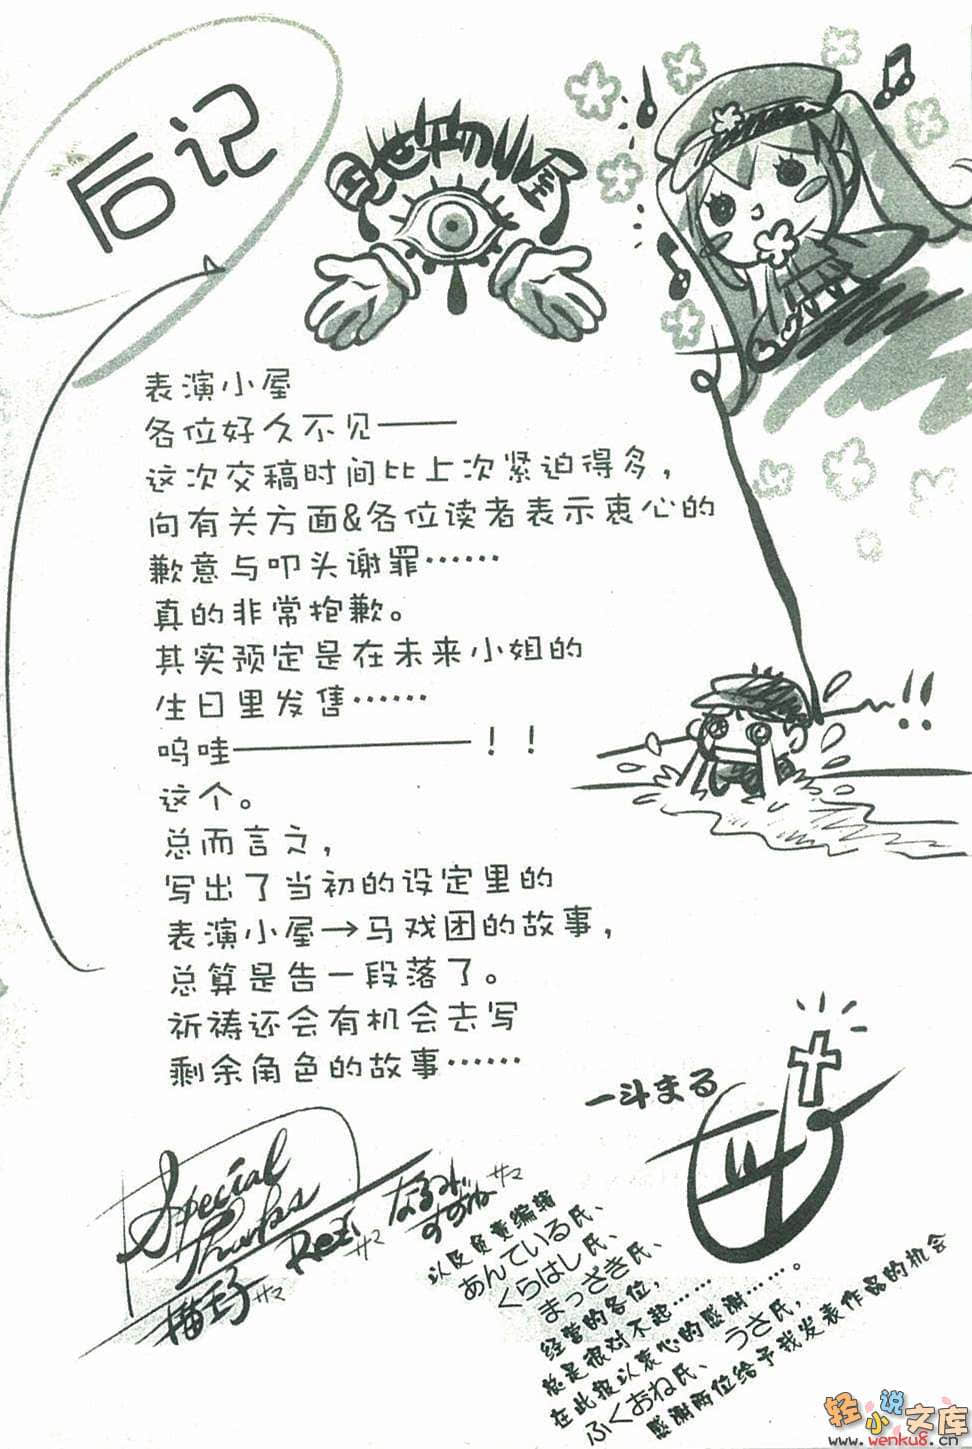 后记
表演小屋
各位好久不见——
这次交稿时间比上次紧迫得多，
向有关方面&各位读者表示衷心的
歉意与叩头谢罪……
真的非常抱歉。
其实预定是在未来小姐的
生日里发售……
呜哇——————！！
这个。
总而言之，
写出了当初的设定里的
表演小屋→马戏团的故事，
总算是告一段落了。
祈祷还会有机会去写
剩余角色的故事……
!!
一斗まる
Special
Thanks
Rezサマ
なるみ
すずねサマ
サマ
以及负责编辑
あんている氏、
くらはし氏、
まっざき氏、
经营的各位，
总是很对不起……
在此报以衷心的感谢……。
ふくおね氏、うさ氏，
感谢两位给予我发表作品的机会
轻小说文库
www.wenku8.cn